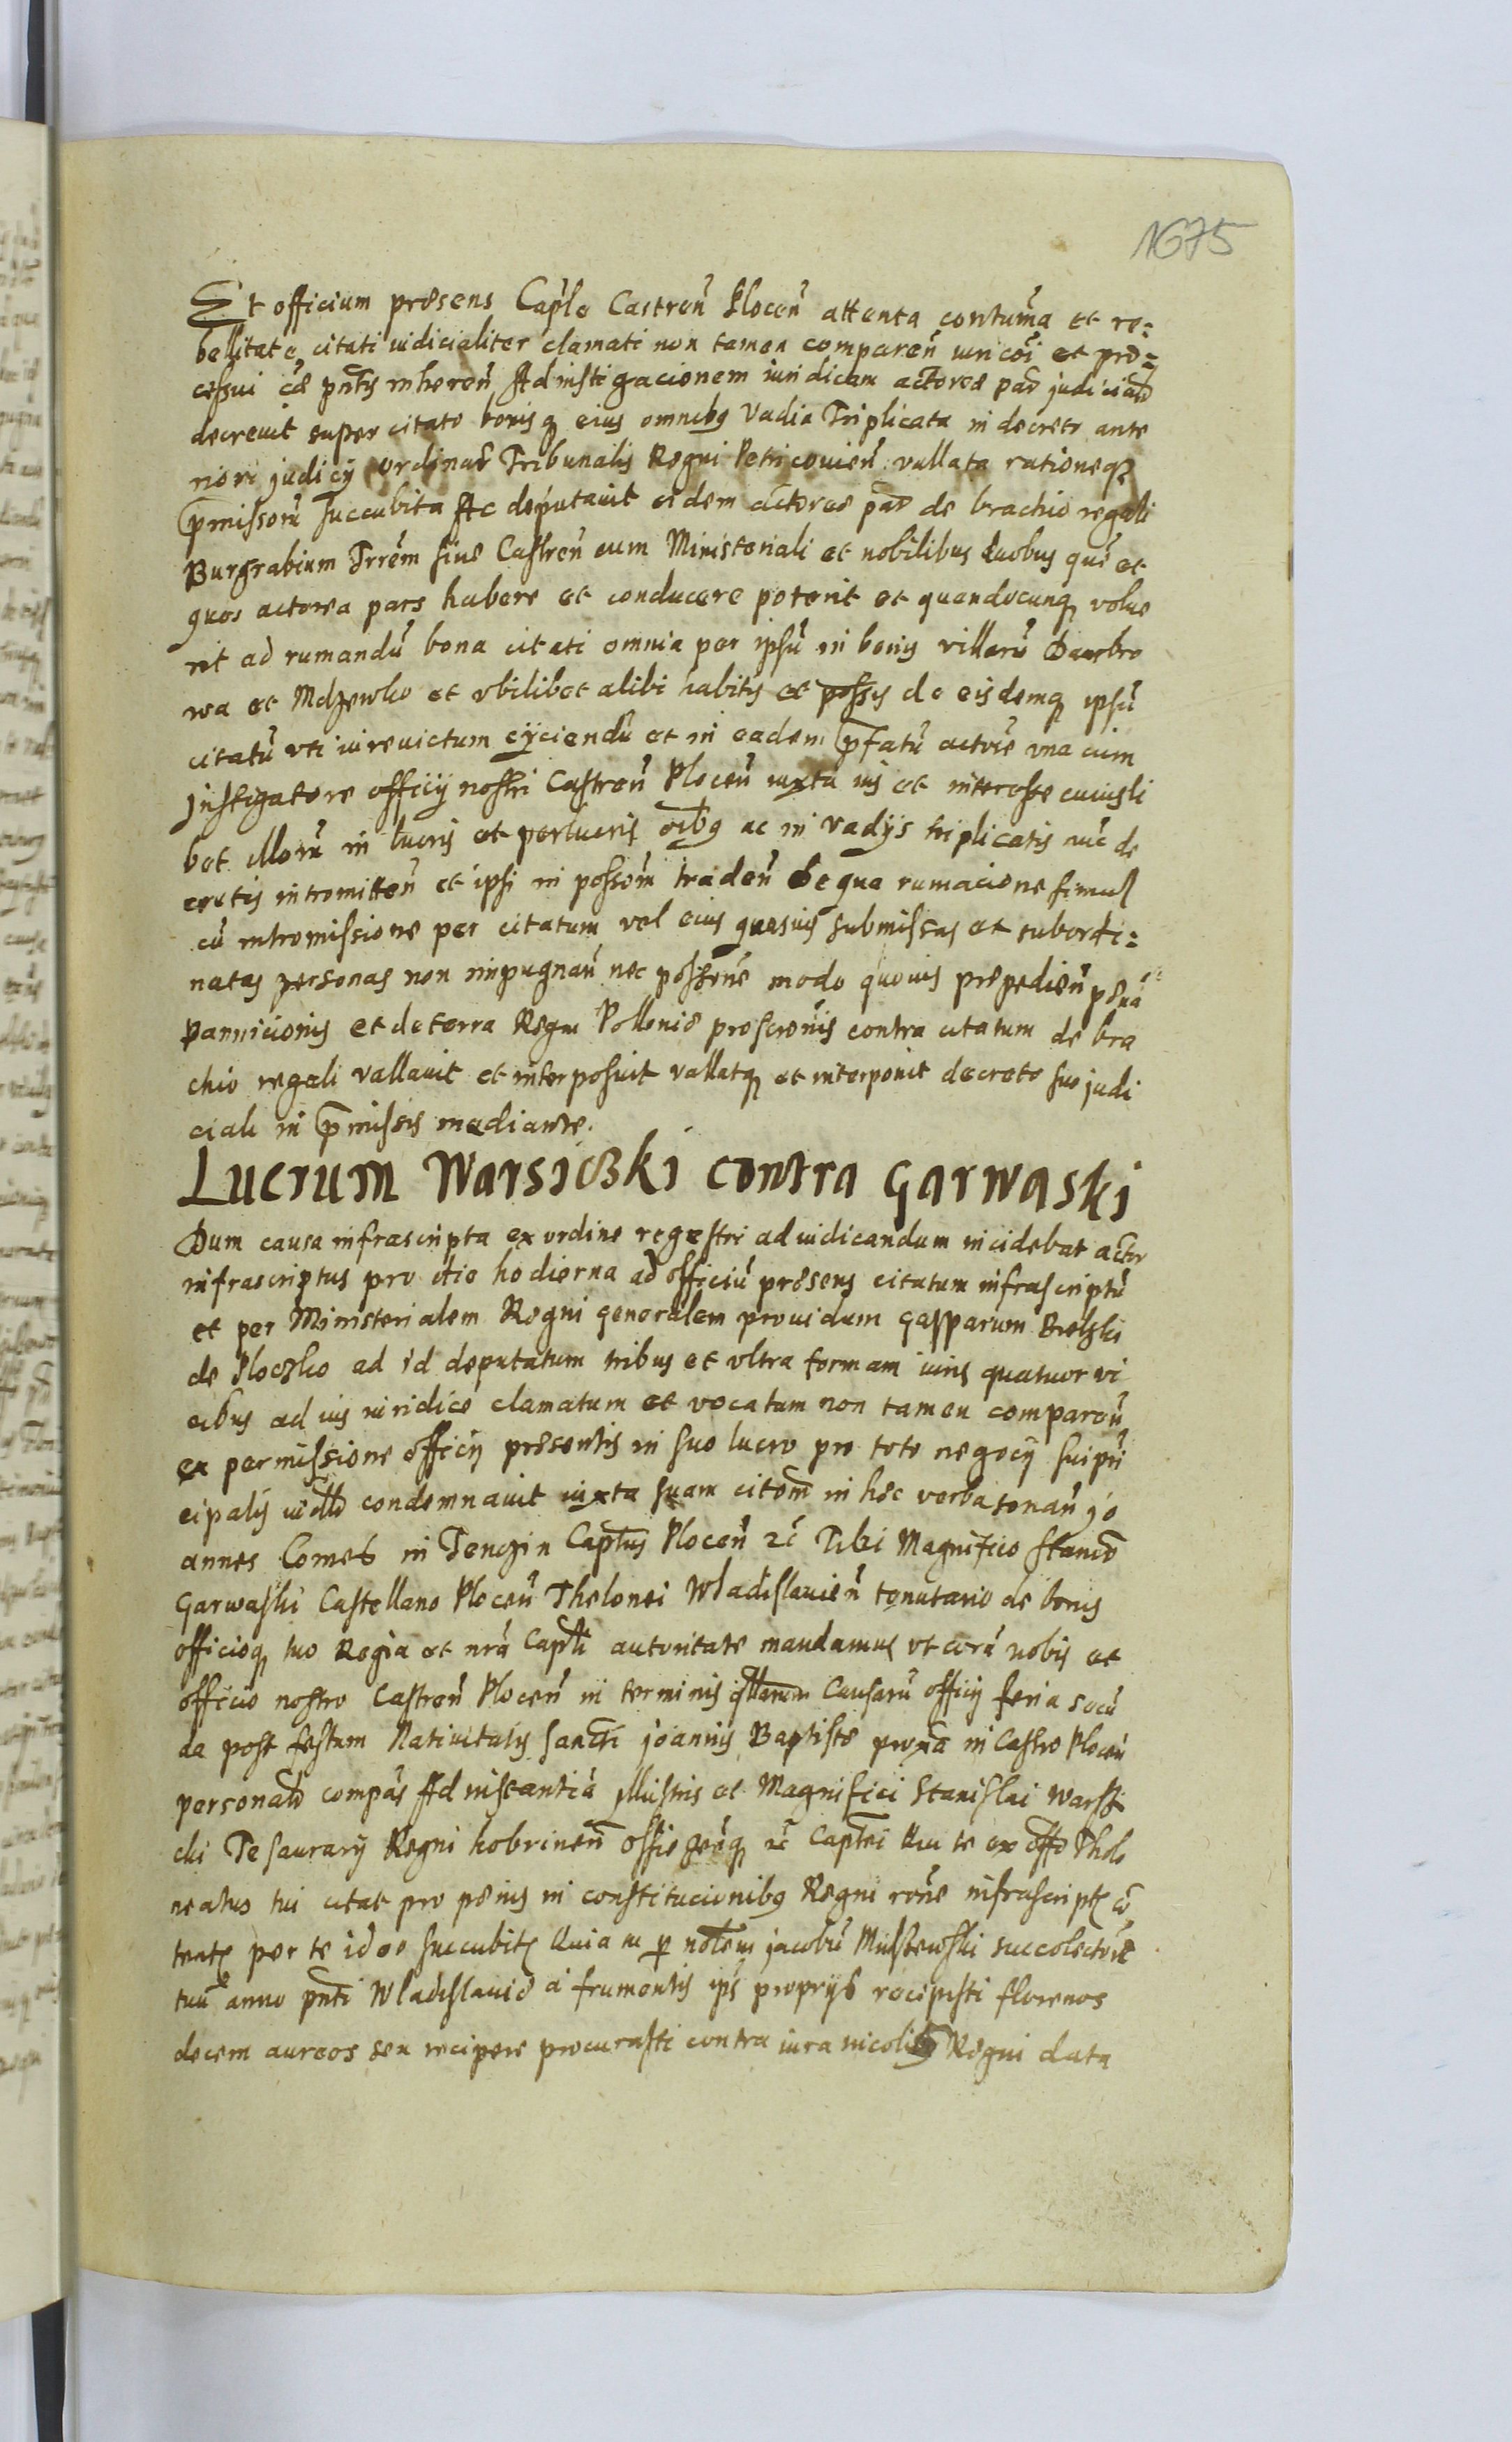 1675
Et officium præsens Cap̃le Castren̄ Plocen̄ attenta contum̃a et re:
bellitate citati iudicialiter clamati non tamen comparen̄ iuri cõi et pro=
cessui cæ pñtis inheren̄ Ad instigacionem iuridicam actoreæ par̃ judiciałr
decreuit super citato bonisq eius omnibq Vadia Triplicata in decreto ante
riori judicij ordinar̃ Tribunalis Regni Petricouien̄ vallata rationeq
p̄missorũ succubita Ac deputauit eidem actoreæ par̃ de brachio regali
Burgrabium Trrẽm siue Castren̄ cum Ministeriali et nobilibus duobus quẽ et
quos actorea pars habere et conducere poterit et quandocunq volue
rit ad rumandũ bona citati omnia per ipsũ in bonis villarũ Dambro
wa et Mdzewko et vbilibet alibi habitis et possis de eisdemq ipsũ
citatũ vti iure victum eyciendũ et in eadem p̄fatũ actorẽ vna cum
jnstigatore officij nostri Castren̄ Plocen̄ iuxta ius et interesse cuiusli
bet illorũ in lucris et perlucris õibq ac in vadijs triplicatis nũc de
cretis intromitten̄ et ipsi in possom̃ traden̄ De qua rumacione simul
cũ intromissione per citatum vel eius quasuis submissas et subordi:
natas personas non impugnan̄ nec possone modo quouis præpedien̄ pœnã
bannicionis et de terra Regni Polloniæ proscronis contra citatum de bra
chio regali vallauit et interposuit vallatq et interponit decreto suo judi
ciali in p̄missis mediante.
Lucrum Warsiczki contra Garwaski
Dum causa infrascripta ex ordine regestri ad iudicandum incidebat actor
infrascriptus pro die hodierna ad officiũ præsens citatum infrascriptũ
et per Ministerialem Regni generalem prouidum Gasparum Bielski
de Ploczko ad id deputatum tribus et vltra formam iuris quatuor vi
cibus ad ius iuridice clamatum et vocatum non tamen comparen̄
ex permissione officij præsentis in suo lucro pro toto negocij sui prin
cipalis condemnauit iuxta suam citom̃ in hæc verba sonan̄ Jo
annes Comes in Tenczin Captus Plocen̄ zc Tibi Magnifico Stanisl
Garwaski Castellano Plocen̄ Thelonei Wladislauien̄ tenutario de bonis
officioq tuo Regia et nrã Capłi autoritate mandamus vt corã nobis et
officio nostro Castren̄ Plocen̄ in terminis causarũ officij feria secũ
da post festum Natiuitatis Sancti Joannis Baptistæ proxa in Castro Plocen̄
personałr compas Ad instantiã Illustris et Magnifici Stanislai Warszi
cki Tesaurarij Regni kobrinen̄ zc Captei Qui te ex offo Thelo
neatus tui citat pro pœnis in constitucionibq Regni rone infrascript cõ
tent per te ideo succubit Quia tu p nobłem Jacobũ succolectorẽ
tuũ anno pñti Wladislauiæ a frumentis ips proprijs recepisti florenos
decem aureos seu recipere procurasti contra iura incolisq Regni data